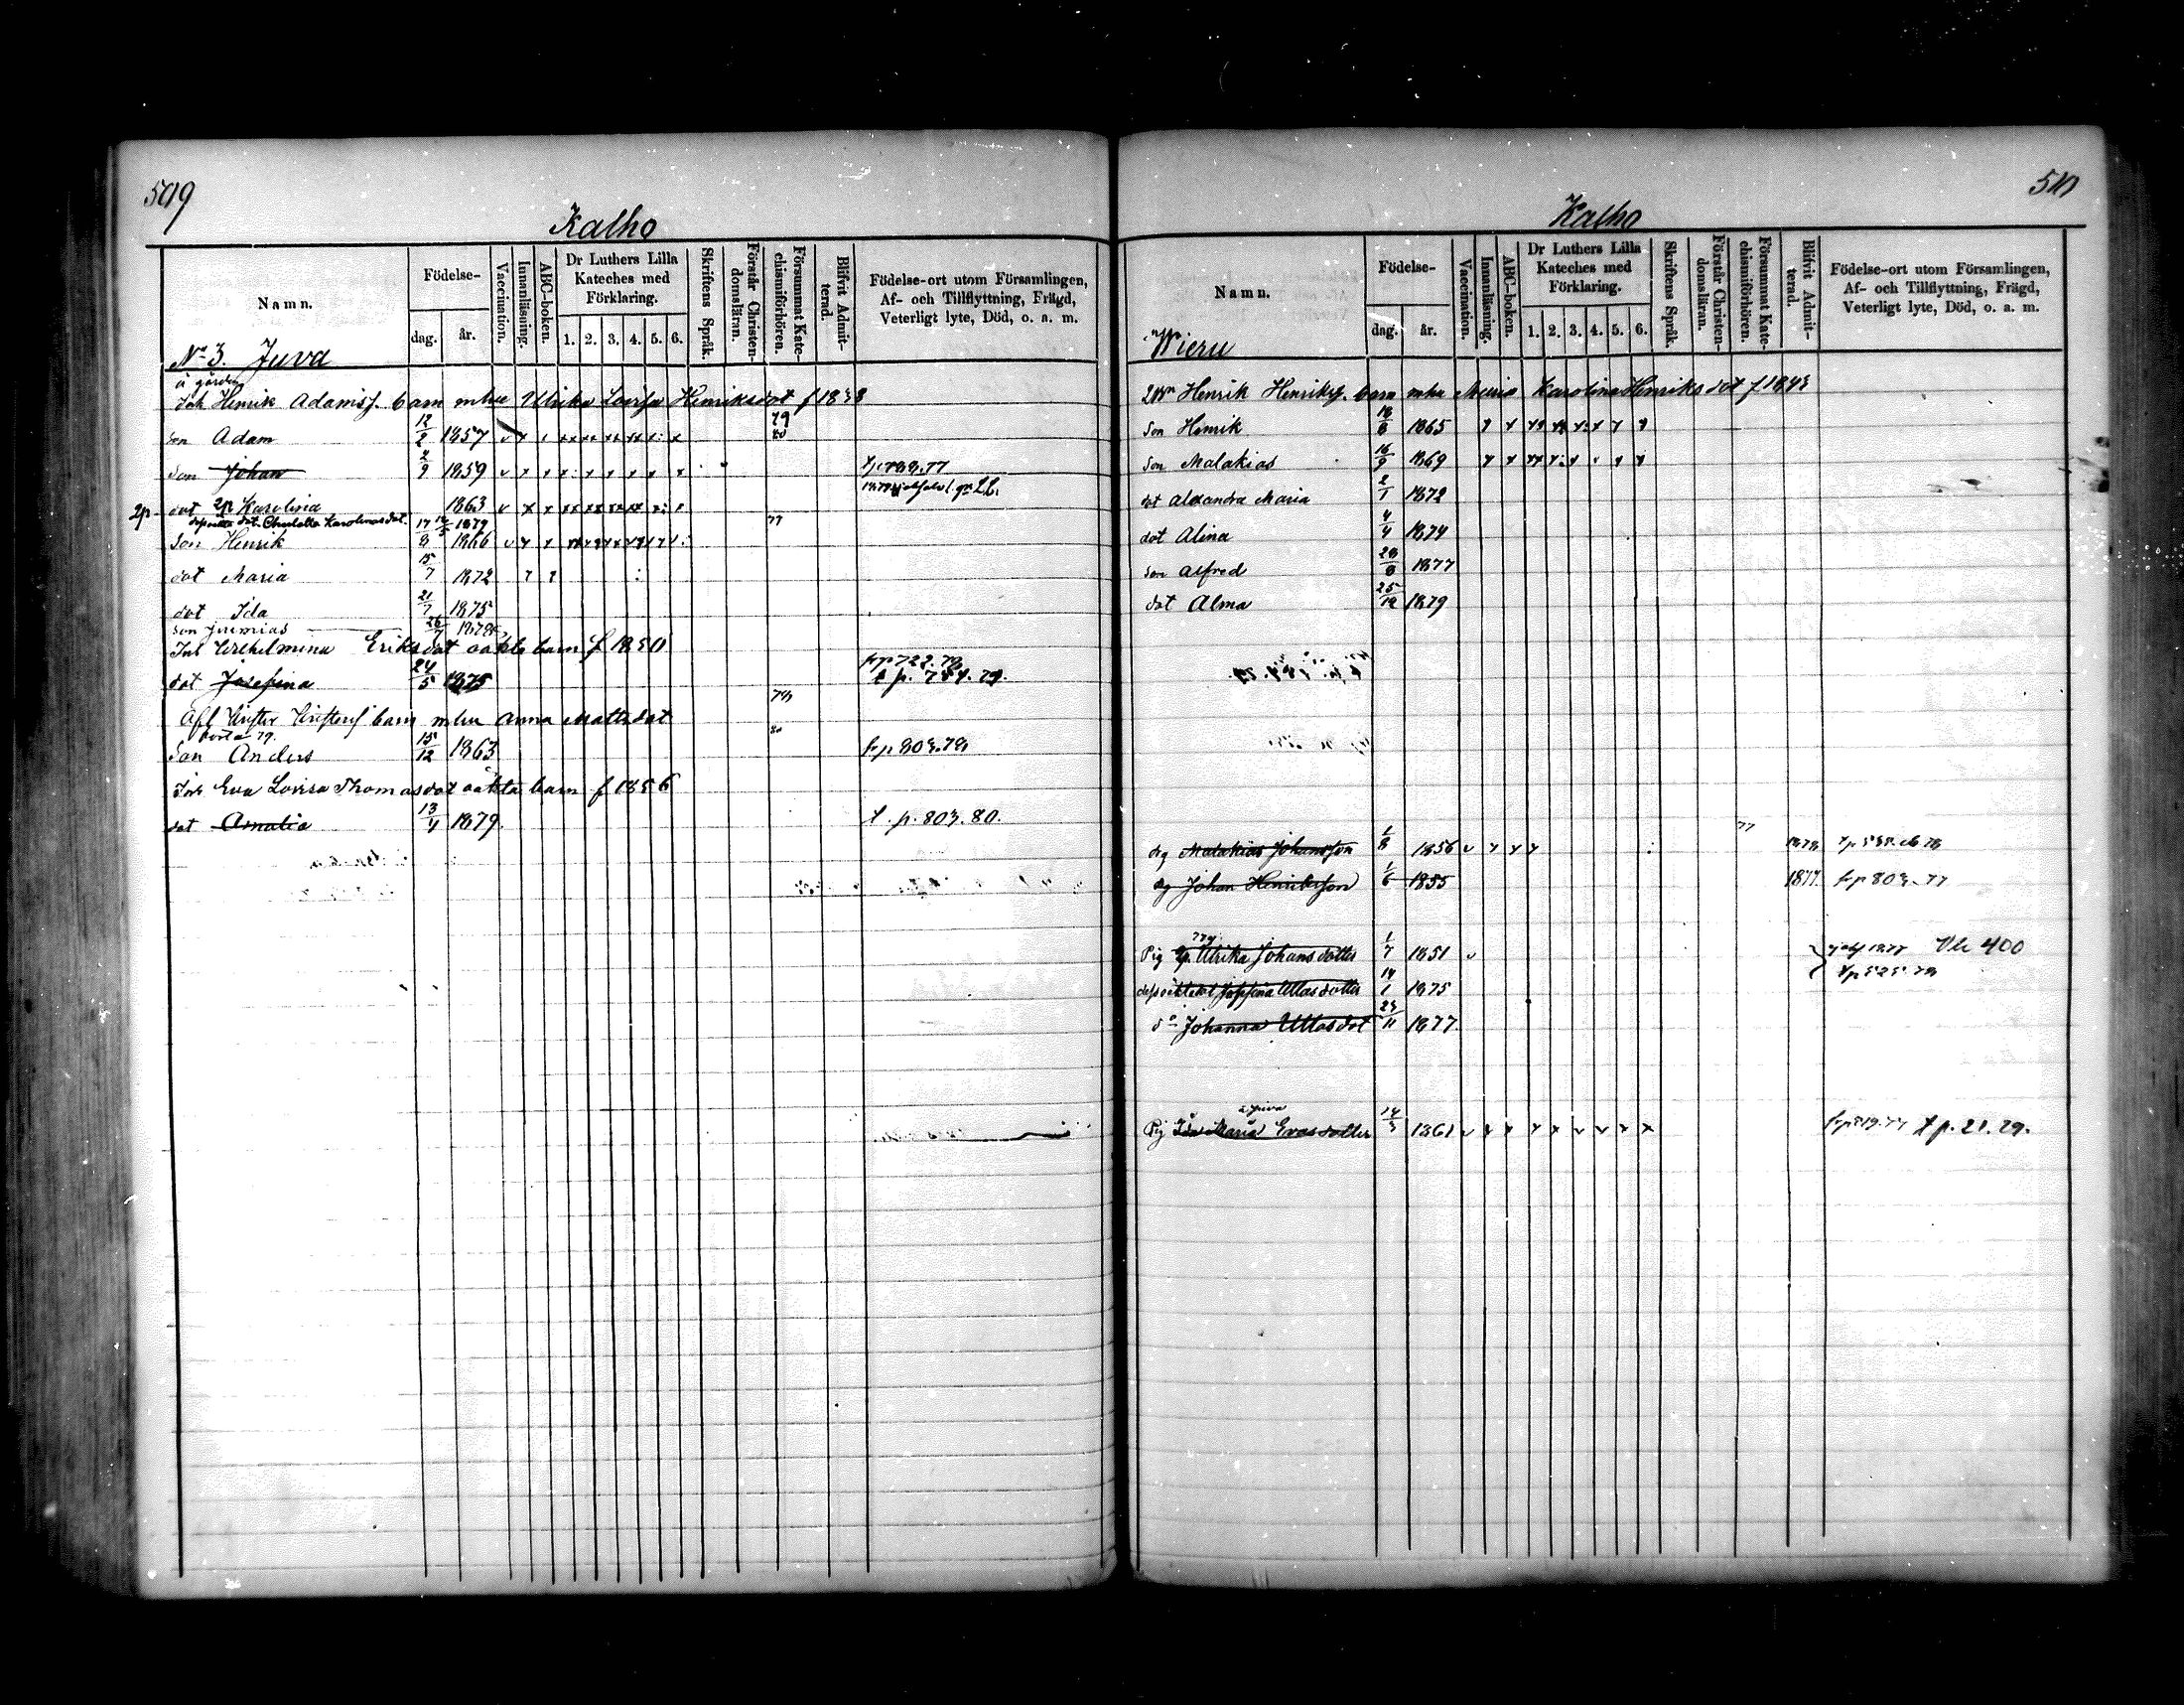 509
Kalho
Namn.
Födelse-
dag.
år.
Vaccination.
Innanläsning.
ABC-boken.
Dr Luthers Lilla
Kateches med
Förklaring.
1. 2. 3. 4. 5. 6.
Skriftens Språk.
Förstår Christen-
domsläran.
Försummat Kate-
chismiförhören.
Blifvit Admit-
terad.
Födelse-ort utom Församlingen,
Af- och Tillflyttning, Frägd,
Veterligt lyte, Död, o. a. m.
No 3. Juva
å gården
Henrik Adamss. barn m hu Ulrika Lovisa Henriksdot f 1838
79
Son Adam 12/2 1857 v x 80
Son Johan 1859 v x x
2p dot 2p Karolina 1863 v x x
dot. Charlotta Karolinasdot. 1879 77
Son Henrik 17/8 1866 v x x
dot Maria 15/7 1872
dot Ida 21/7 1875
Son Jeremias 26/7 1878
Wilhelmina Eriksdot oäkta barn f 1850
fr p 722. 78
dot Josefina 24/5 1875 t p. 754. 79.
barn m hu Anna Mattsdot
borta 79. 80
Son Anders 15/12 1863 fr p 803. 78
Inh Eva Lovisa Thomasdot oäkta barn f 1856
dot Amalia 13/4 1879. t. p. 803. 80.
510
Kalho
Namn.
Födelse-
dag.
år.
Vaccination.
Innanläsning.
ABC-boken.
Dr Luthers Lilla
Kateches med
Förklaring.
1. 2. 3. 4. 5. 6.
Skriftens Språk.
Förstår Christen-
domsläran.
Försummat Kate-
chismiförhören.
Blifvit Admit-
terad.
Födelse-ort utom Församlingen,
Af- och Tillflyttning, Frägd,
Veterligt lyte, Död, o. a. m.
Wieru
Henrik Henrikss. barn m hu Maria Karolina Henriksdot f 1843
Son Henrik 18/8 1865
Son Malakias 16/9 1869
dot Alexandra Maria 2/1 1872
dot Alina 4/4 1874
Son Alfred 28/8 1877
dot Alma 25/12 1879
77
drg Malakias Johansson 1/8 1856 v x x x 1878
drg Johan Henriksson 1/6 1855 1877 fr p 803. 77
Pig Ulrika Johansdotter 1/7 1851 v Vh 400
Josefina Ullasdotter 14/1 1875
do Johanna Ullasdot 23/11 1877.
å Juva
Pig Ida Maria Evasdotter 14/3 1861 v x x x x v v x x fr p 519. 77 t p. 21. 79.